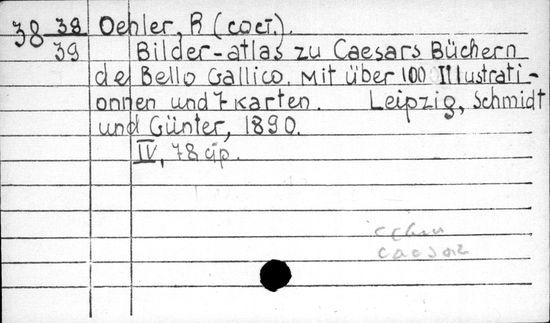 38 38 Oehler, R (сост.).
39 Bilder-atlas zu Caesars Büchern
de Bello Gallico. Mit über 100 Illustrati-
onnen und 7 Karten. Leipzig, Schmidt
und Günter, 1890.
IV, 78 стр.